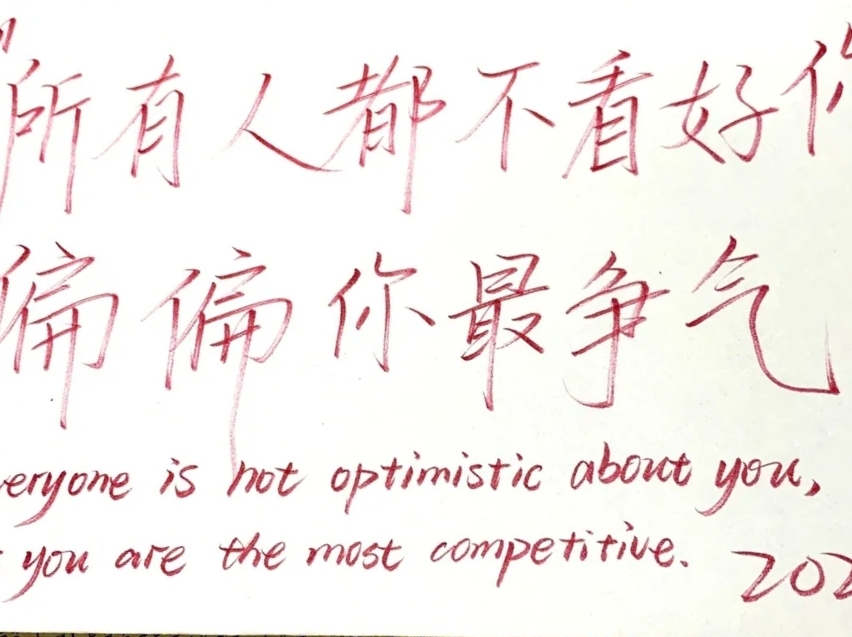 "所有人都不看好你
偏偏你最争气
veryone is not optimistic about you,
you are the most competitive.
202